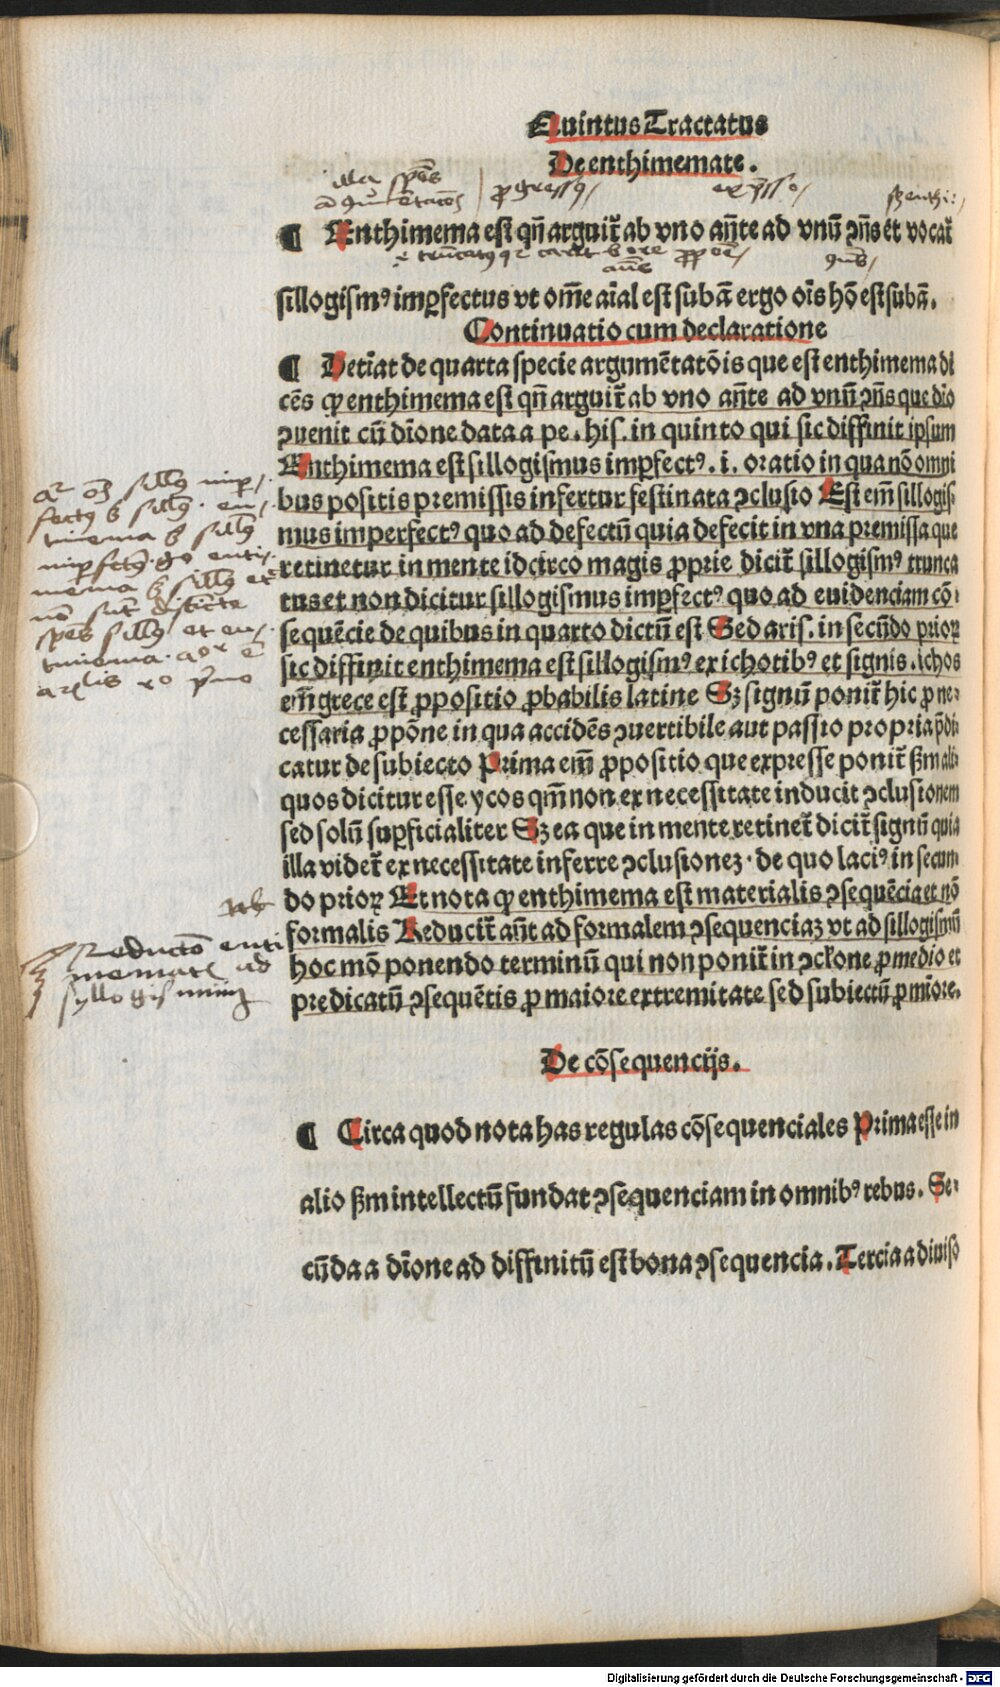 Quintus Tractatus
De enthimemate.
illa spēs | ꝓgressꝰ
¶ Enthimema est qn̄ arguit̄ ab vno an̄te ad vnū ꝯn̄s et vocat̄
sillogismꝰ imꝑfectus vt om̄e aīal est subā ergo oīs hō est subā.
Continuatio cum declaratione
¶ Det̄iat de quarta specie argumētatōis que est enthimema di
cēs ꝙ enthimema est qn̄ arguit̄ ab vno an̄te ad vnū ꝯn̄s que dīo
ꝯuenit cū dīone data a pe. his. in quinto qui sic diffinit ipsum
Enthimema est sillogismus imꝑfectꝰ .i. oratio in qua nō omni
bus positis premissis infertur festinata ꝯclusio Est em̄ sillogis
mus imperfectꝰ quo ad defectū quia defecit in vna premissa que
retinetur in mente idcirco magis ꝓprie dicit̄ sillogismꝰ trunca
tus et non dicitur sillogismus imꝑfectꝰ quo ad euidenciam cō
sequēcie de quibus in quarto dictū est Sed aris. in secūdo prioꝝ
sic diffinit enthimema est sillogismꝰ ex ichotibꝰ et signis. ichos
em̄ grece est ꝓpositio ꝓbabilis latine Sꝫ signū ponit̄ hic ꝓ ne
cessaria ꝓpōne in qua accidēs ꝯuertibile aut passio propria p̄di
catur de subiecto Prima em̄ ꝓpositio que expresse ponit̄ ẜm ali
quos dicitur esse ycos qm̄ non ex necessitate inducit ꝯclusionem
sed solū suꝑficialiter Sꝫ ea que in mente retinet̄ dicit̄ signū quia
illa videt̄ ex necessitate inferre ꝯclusionez. de quo laciꝰ in secun
do prioꝝ Et nota ꝙ enthimema est materialis ꝯsequēcia et nō
formalis Reducit̄ aūt ad formalem ꝯsequenciaꝫ vt ad sillogismū
hoc mō ponendo terminū qui non ponit̄ in ꝯclone ꝓ medio et
predicatū ꝯsequētis ꝓ maiore extremitate sed subiectū ꝓ miore.
Reductō enti
mematꝭ ad
syllogismū
De cōsequencijs.
¶ Circa quod nota has regulas cōsequenciales Prima esse in
alio ẜm intellectū fundat ꝯsequenciam in omnibꝰ rebus. Se
cūda a dīone ad diffinitū est bona ꝯsequencia. Tercia a diuiso
Digitalisierung gefördert durch die Deutsche Forschungsgemeinschaft - DFG